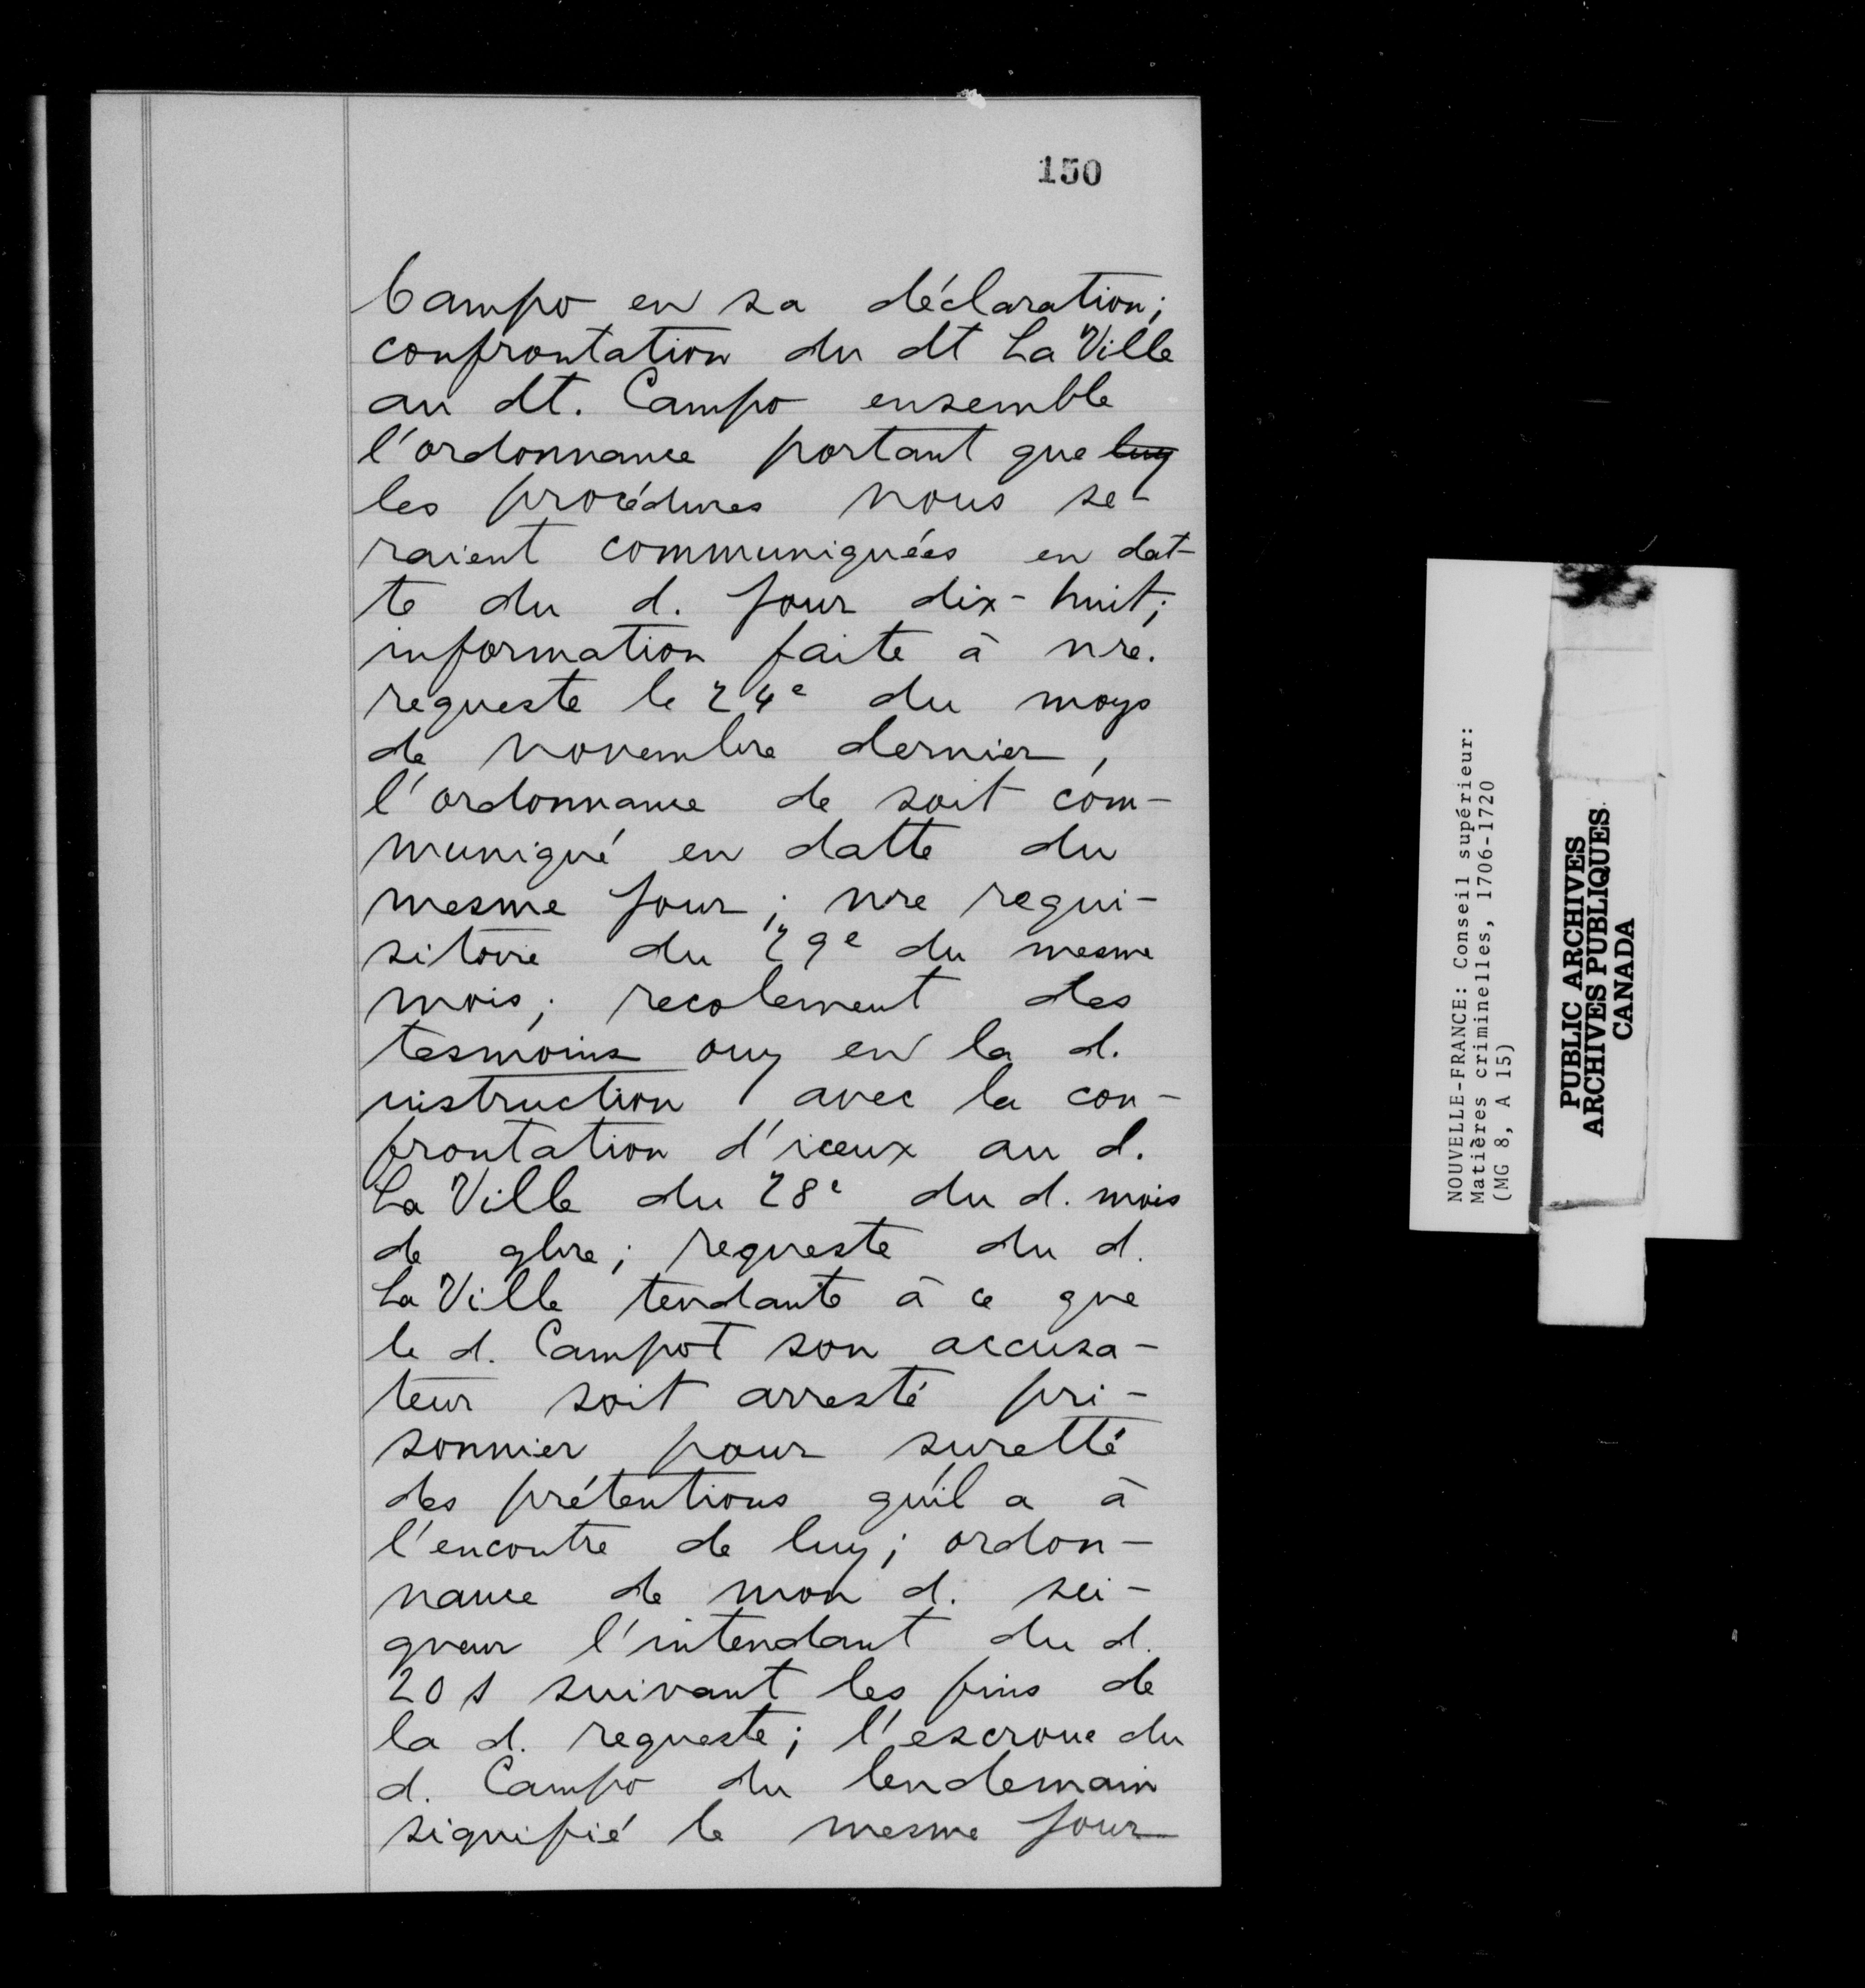 150
Campo en sa déclaration;
confrontation du dt La Ville
au dt. Campo ensemble
l'ordonnance portant que luy
les procédures nous se-
raient communiquées en dat-
te du d. jour dix-huit;
information faite à nre.
requeste le 24e du moys
de novembre dernier,
l'ordonnance de soit com-
muniqué en datte du
mesme jour; nre requi-
sitoire du 29e du mesme
mois; recolement des
tesmoins ouy en la d.
instruction avec la con-
frontation d'iceux au d.
La Ville du 28e du d. mois
de 9bre; requeste du d.
La Ville tendante à ce que
le d. Campot son accusa-
teur soit arresté pri-
sonnier pour suretté
des prétentions qu'il a à
l'encontre de luy; ordon-
nance de mon d. sei-
gneur l'intendant du d.
20 suivant les fins de
la d. requeste; l'escroue du
d. Campo du lendemain
signifié le mesme jour
NOUVELLE-FRANCE: Conseil supérieur:
Matières criminelles, 1706-1720
(MG 8, A 15)
PUBLIC ARCHIVES
ARCHIVES PUBLIQUES
CANADA